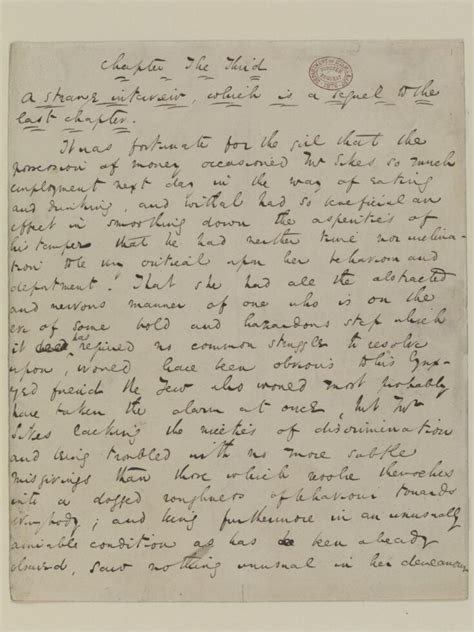 Chapter The Third
A strange interview, which is a sequel to the
last chapter.
It was fortunate for the girl that the
possession of money occasioned Mr Sikes so much
employment next day in the way of eating
and drinking, and withal had so beneficial an
effect in smoothing down the asperities of
his temper that he had neither time nor inclina-
tion to be very critical upon her behaviour and
deportment. That she had all the abstracted
and nervous manner of one who is on the
eve of some bold and hazardous step which
it has required no common struggle to resolve
upon, would have been obvious to his lynx-
eyed friend the Jew who would most probably
have taken the alarm at once, but Mr
Sikes lacking the niceties of discrimination
and being troubled with no more subtle
misgivings than those which resolve themselves
into a dogged roughness of behaviour towards
everybody; and being furthermore in an unusually
amiable condition as has been already
observed, saw nothing unusual in her demeanour